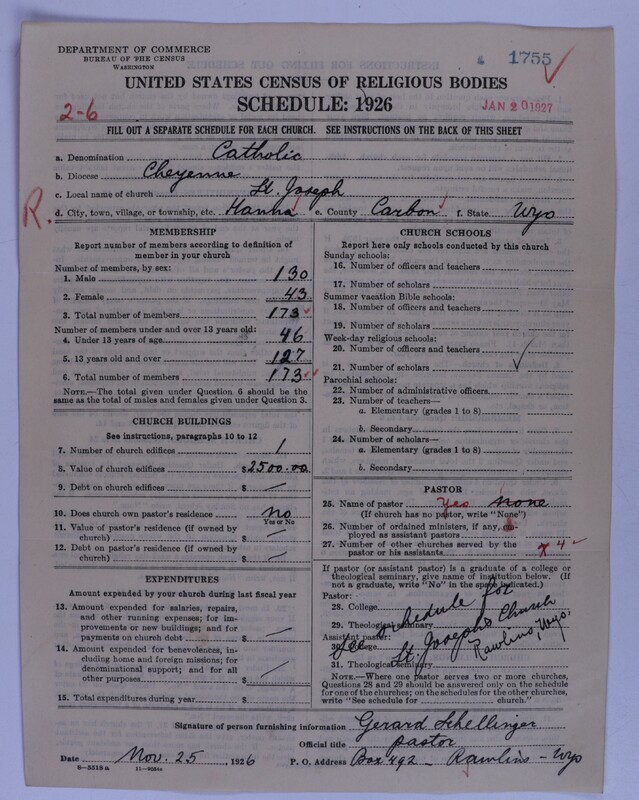 DEPARTMENT OF COMMERCE
BUREAU OF THE CENSUS
WASHINGTON
1755
UNITED STATES CENSUS OF RELIGIOUS BODIES
SCHEDULE: 1926
2-6
JAN 20 1927
FILL OUT A SEPARATE SCHEDULE FOR EACH CHURCH. SEE INSTRUCTIONS ON THE BACK OF THIS SHEET
a. Denomination Catholic
b. Diocese Cheyenne
c. Local name of church St. Joseph
R.
d. City, town, village, or township, etc. Hanna e. County Carbon f. State Wyo
MEMBERSHIP
Report number of members according to definition of
member in your church
Number of members, by sex:
1. Male 130
2. Female 43
3. Total number of members 173
Number of members under and over 13 years old:
4. Under 13 years of age 46
5. 13 years old and over 127
6. Total number of members 173
NOTE.—The total given under Question 6 should be the
same as the total of males and females given under Question 3.
CHURCH BUILDINGS
See instructions, paragraphs 10 to 12
7. Number of church edifices 1
8. Value of church edifices $2500.00
9. Debt on church edifices $ —
10. Does church own pastor's residence? no
Yes or No
11. Value of pastor's residence (if owned by
church) $ —
12. Debt on pastor's residence (if owned by
church) $ —
EXPENDITURES
Amount expended by your church during last fiscal year
13. Amount expended for salaries, repairs,
and other running expenses; for im-
provements or new buildings; and for
payments on church debt $ —
14. Amount expended for benevolences, in-
cluding home and foreign missions; for
denominational support; and for all
other purposes $ —
15. Total expenditures during year $
CHURCH SCHOOLS
Report here only schools conducted by this church
Sunday schools:
16. Number of officers and teachers
17. Number of scholars
Summer vacation Bible schools:
18. Number of officers and teachers
19. Number of scholars
Week-day religious schools:
20. Number of officers and teachers
21. Number of scholars
Parochial schools:
22. Number of administrative officers
23. Number of teachers—
a. Elementary (grades 1 to 8)
b. Secondary
24. Number of scholars—
a. Elementary (grades 1 to 8)
b. Secondary
PASTOR
25. Name of pastor Yes none
(If church has no pastor, write "None")
26. Number of ordained ministers, if any, em-
ployed as assistant pastors
27. Number of other churches served by the
pastor or his assistants x 4
If pastor (or assistant pastor) is a graduate of a college or
theological seminary, give name of institution below. (If
not a graduate, write "No" in the space indicated.)
Pastor:
28. College
29. Theological seminary
Assistant pastor:
30. College
31. Theological seminary
See schedule for
St. Joseph's Church
Rawlins, Wyo.
NOTE.—Where one pastor serves two or more churches,
Questions 28 and 29 should be answered only on the schedule
for one of the churches; on the schedules for the other churches,
write "See schedule for church."
Signature of person furnishing information Gerard Schellinger
Official title pastor
Date Nov. 25, 1926 P. O. Address Box 492 — Rawlins — Wyo